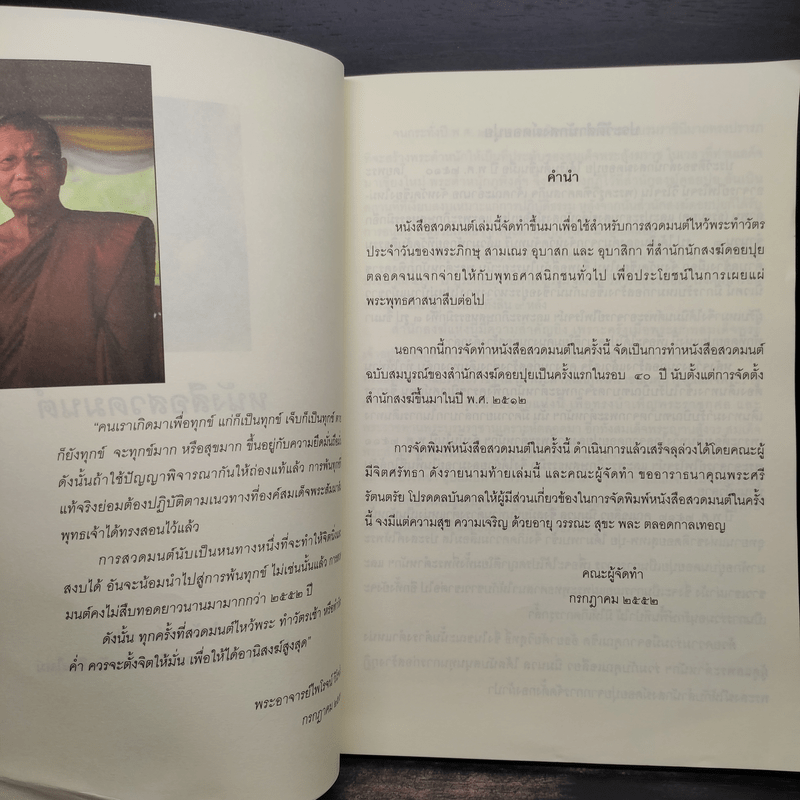 "คนเราเกิดมาเพื่อทุกข์ แก่ก็เป็นทุกข์ เจ็บก็เป็นทุกข์ ตาย
ก็ยังทุกข์ จะทุกข์มาก หรือสุขมาก ขึ้นอยู่กับความยึดมั่นถือมั่น
ดังนั้นถ้าใช้ปัญญาพิจารณากันให้ถ่องแท้แล้ว การพ้นทุกข์
แท้จริงย่อมต้องปฏิบัติตามแนวทางที่องค์สมเด็จพระสัมมาสัม
พุทธเจ้าได้ทรงสอนไว้แล้ว
การสวดมนต์นับเป็นหนทางหนึ่งที่จะทำให้จิตนิ่งและ
สงบได้ อันจะน้อมนำไปสู่การพ้นทุกข์ ไม่เช่นนั้นแล้ว การสวด
มนต์คงไม่สืบทอดยาวนานมามากกว่า ๒๕๕๒ ปี
ดังนั้น ทุกครั้งที่สวดมนต์ไหว้พระ ทำวัตรเช้า หรือทำวัตร
ค่ำ ควรจะตั้งจิตให้มั่น เพื่อให้ได้อานิสงฆ์สูงสุด"
พระอาจารย์ไพโรจน์
กรกฎาคม
คำนำ
หนังสือสวดมนต์เล่มนี้จัดทำขึ้นมาเพื่อใช้สำหรับการสวดมนต์ไหว้พระทำวัตร
ประจำวันของพระภิกษุ สามเณร อุบาสก และ อุบาสิกา ที่สำนักนักสงฆ์ดอยปุย
ตลอดจนแจกจ่ายให้กับพุทธศาสนิกชนทั่วไป เพื่อประโยชน์ในการเผยแผ่
พระพุทธศาสนาสืบต่อไป
นอกจากนี้การจัดทำหนังสือสวดมนต์ในครั้งนี้ จัดเป็นการทำหนังสือสวดมนต์
ฉบับสมบูรณ์ของสำนักสงฆ์ดอยปุยเป็นครั้งแรกในรอบ ๔๐ ปี นับตั้งแต่การจัดตั้ง
สำนักสงฆ์ขึ้นมาในปี พ.ศ. ๒๕๑๒
การจัดพิมพ์หนังสือสวดมนต์ในครั้งนี้ ดำเนินการแล้วเสร็จลุล่วงได้โดยคณะผู้
มีจิตศรัทธา ดังรายนามท้ายเล่มนี้ และคณะผู้จัดทำ ขออาราธนาคุณพระศรี
รัตนตรัย โปรดดลบันดาลให้ผู้มีส่วนเกี่ยวข้องในการจัดพิมพ์หนังสือสวดมนต์ในครั้ง
นี้ จงมีแต่ความสุข ความเจริญ ด้วยอายุ วรรณะ สุขะ พละ ตลอดกาลเทอญ
คณะผู้จัดทำ
กรกฎาคม ๒๕๕๒